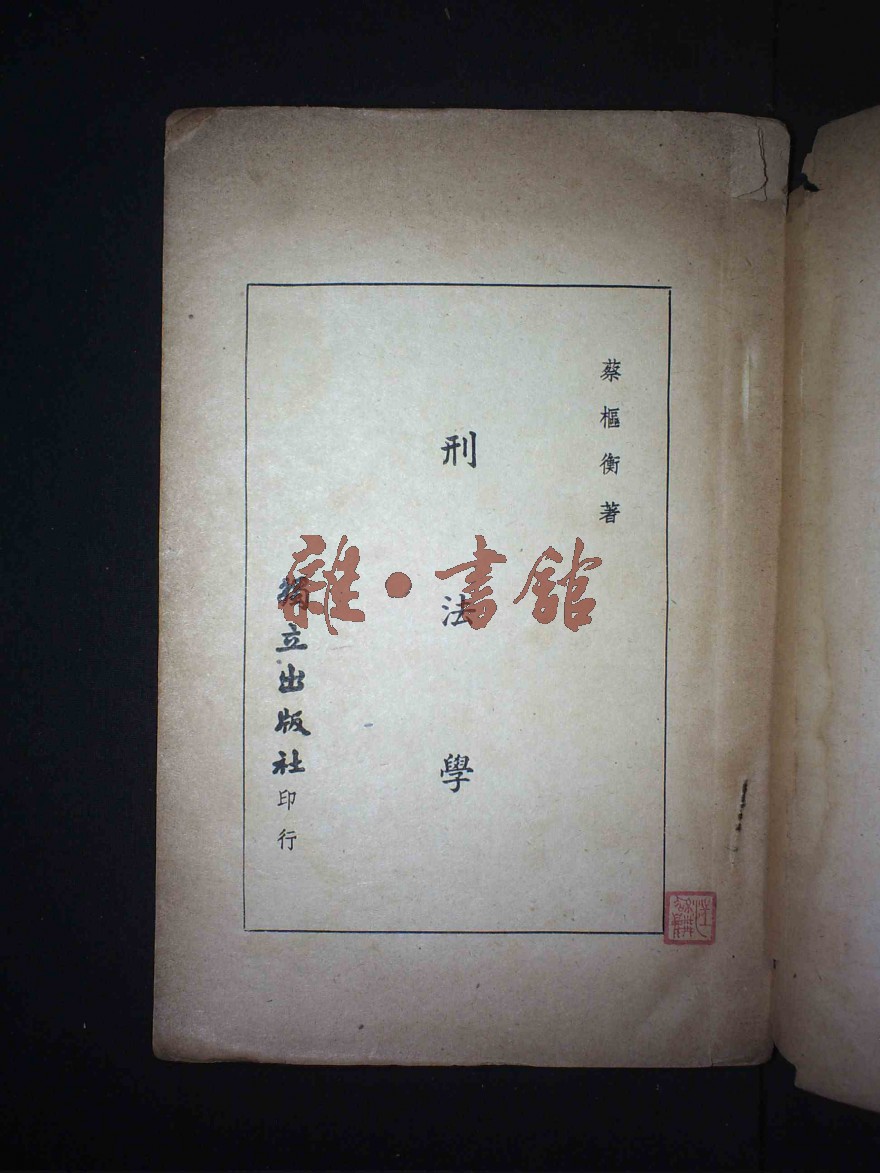 蔡樞衡著
刑法學
獨立出版社印行
雜·書館